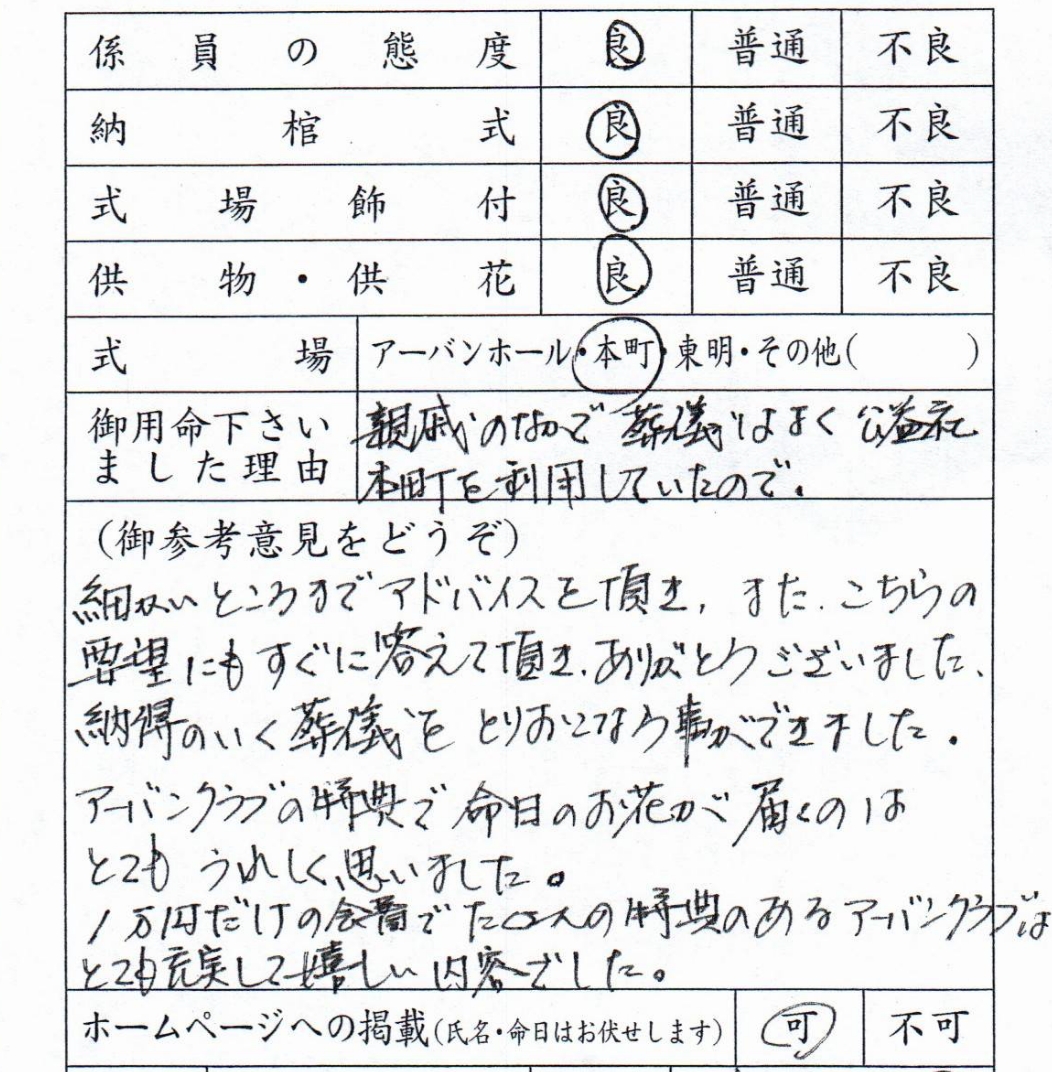 係員の態度 良 普通 不良
納棺式 良 普通 不良
式場飾付 良 普通 不良
供物・供花 良 普通 不良
式場 アーバンホール・本町・東明・その他( )
御用命下さいました理由
親戚のなかで葬儀はよく公益社
本町を利用していたので。
(御参考意見をどうぞ)
細かいところまでアドバイスを頂き、また、こちらの
要望にもすぐに答えて頂き、ありがとうございました、
納得のいく葬儀をとりおこなう事ができました。
アーバンクラブの特典で命日のお花が届くのは
とてもうれしく思いました。
1万円だけの会費でたくさんの特典のあるアーバンクラブは
とても充実して嬉しい内容でした。
ホームページへの掲載(氏名・命日はお伏せします) 可 不可